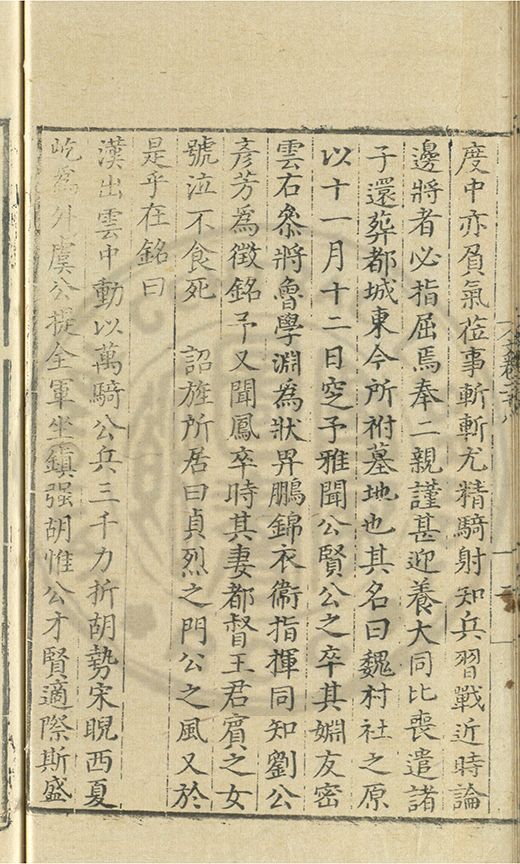 度中亦負氣蒞事斬斬尤精騎射知兵習戰近時論
邊將者必指屈焉奉二親謹甚迎養大同比喪遣諸
子還葬都城東今所祔墓地也其名曰魏村社之原
以十一月十二日窆予雅聞公賢公之卒其姻友密
雲右叅將魯學淵為狀畀鵬錦衣衛指揮同知劉公
彥芳為徵銘予又聞鳳卒時其妻都督王君賓之女
號泣不食死　詔旌所居曰貞烈之門公之風又於
是乎在銘曰
漢出雲中動以萬騎公兵三千力折胡勢宋睨西夏
屹為外虞公提全軍坐鎮强胡惟公才賢適際斯盛